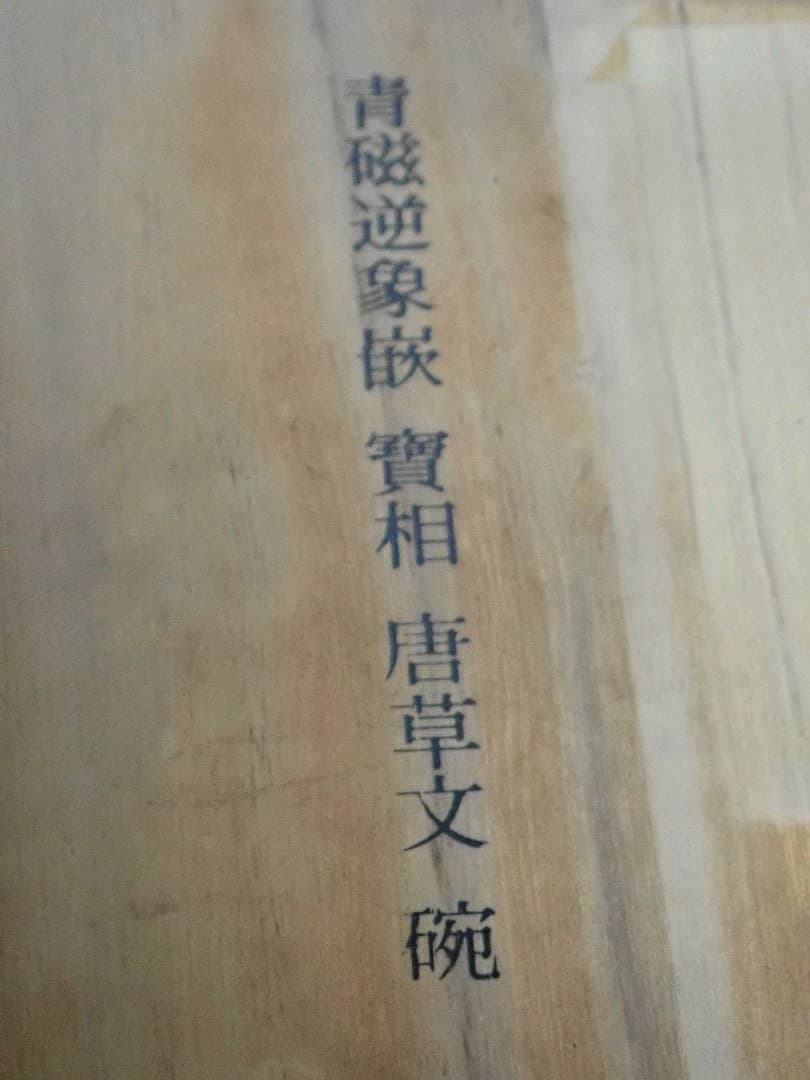 青磁逆象嵌 寶相 唐草文 碗